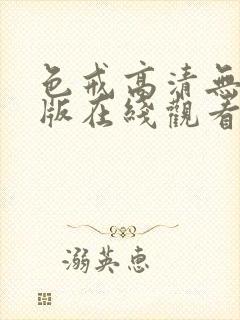 色戒高清無
版在綫觀看
溺英惠